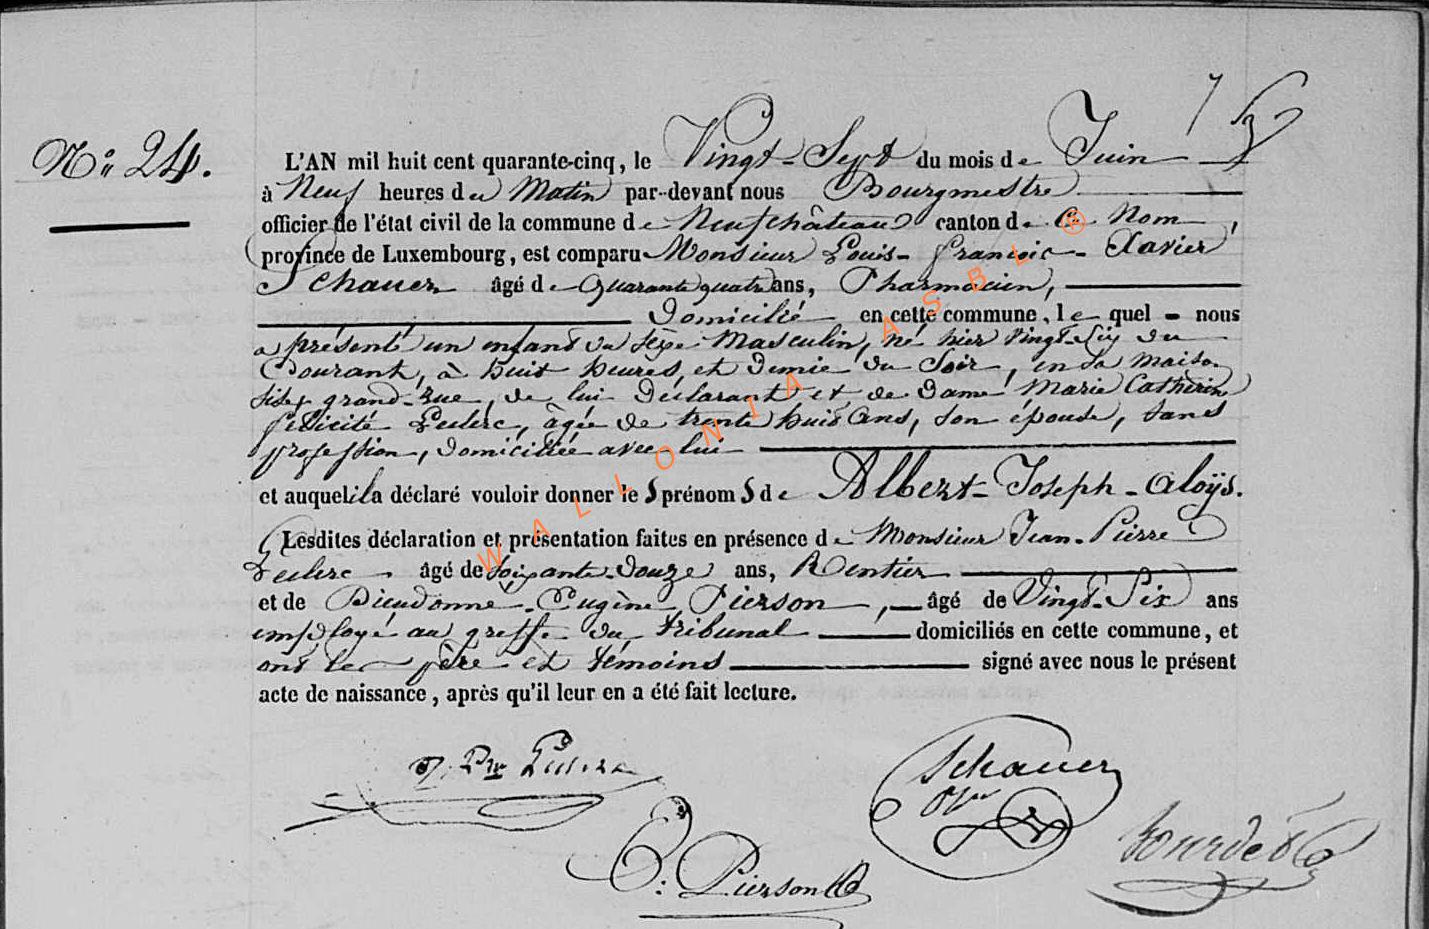 N° 24.
L'AN mil huit cent quarante-cinq, le Vingt-Sept du mois de Juin
à Neuf heures du Matin par-devant nous Bourgmestre
officier de l'état civil de la commune de Neufchâteau canton de ce Nom,
province de Luxembourg, est comparu Monsieur Louis-François-Xavier
Schauer âgé de Quarante quatre ans, Pharmacien,
Domicilié en cette commune, le quel - nous
a présenté un enfant du Sexe Masculin, né hier Vingt-Six du
Courant, à huit heures et demie du Soir, en sa maison
sise grand-rue, de lui Déclarant et de Dame Marie Catherine
félicité Leclerc, âgée de trente huit Ans, Son épouse, Sans
profession, domiciliée avec lui
et auquel il a déclaré vouloir donner le S prénom S de Albert-Joseph-Aloÿs.
Lesdites déclaration et présentation faites en présence de Monsieur Jean-Pierre
Leclerc âgé de Soixante-Douze ans, Rentier
et de Dieudonné-Eugène Pierson, âgé de Vingt-Six ans
employé au greffe du tribunal domiciliés en cette commune, et
ont les père et témoins signé avec nous le présent
acte de naissance, après qu'il leur en a été fait lecture.
J. Pre Leclerc
Schauer
E: Pierson
WALLONIA ASBL ®